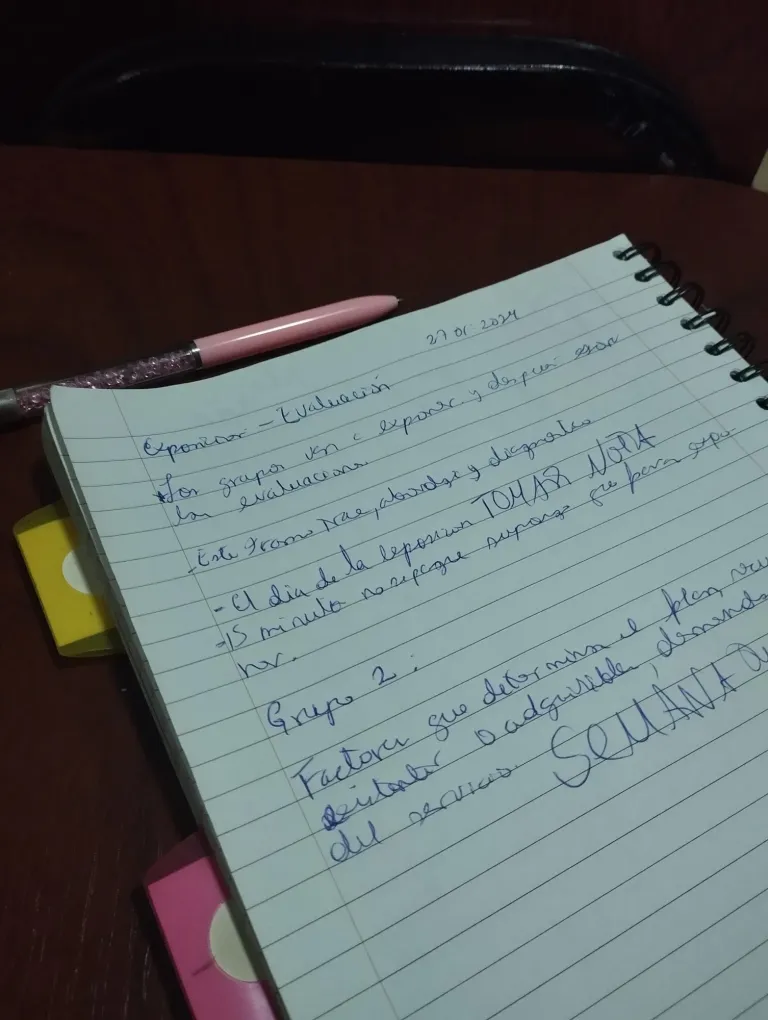 27 01. 2024
Exposicion - Evaluación
Los grupos van a exponer y despues son
las evaluaciones
Este tramo trae, abordaje y diagnostico
- El dia de la exposicion TOMAR NOTA
- 15 minutos no se que supongo que para expo
ner.
Grupo 2:
Factores que determinan el plan
o adquisible, demanda
del servicio SEMANA